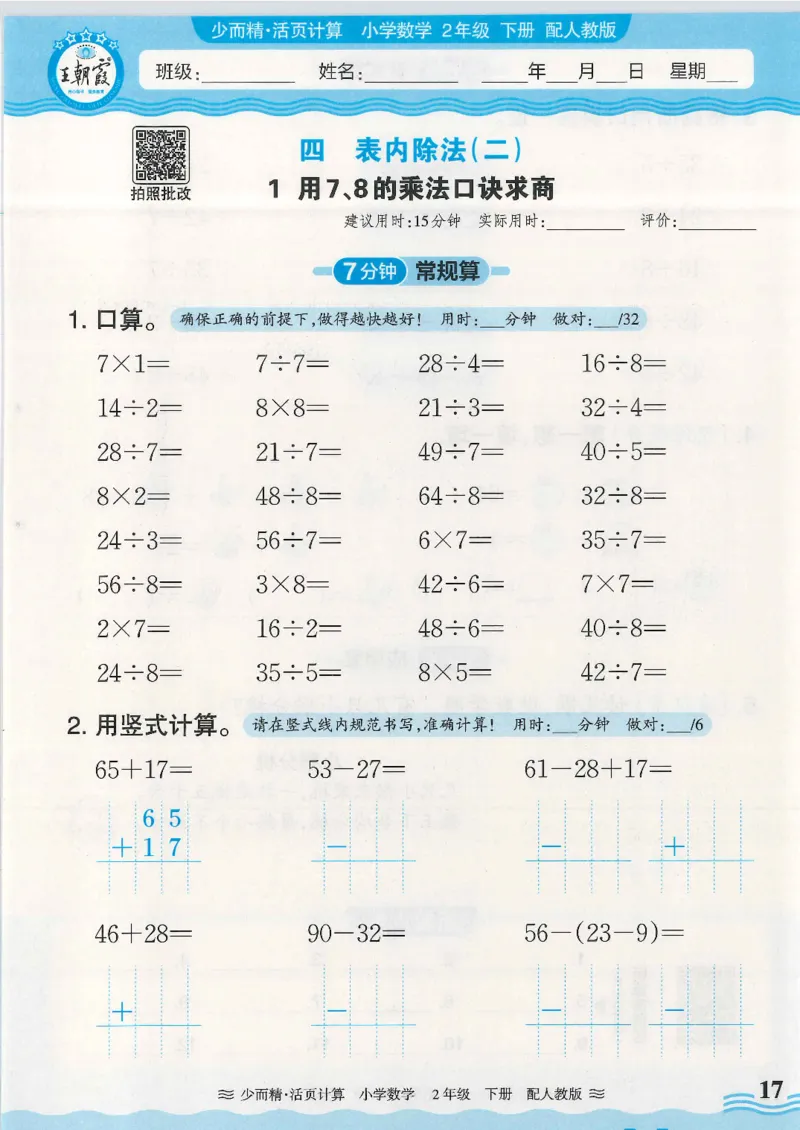 少而精·活页计算 小学数学 2年级 下册 配人教版
王朝霞
班级：________ 姓名：________ ____年___月___日 星期___
拍照批改
四 表内除法(二)
1 用7、8的乘法口诀求商
建议用时:15分钟 实际用时:________ 评价:________
7分钟 常规算
1. 口算。 确保正确的前提下,做得越快越好! 用时:___分钟 做对:___/32
7×1= 7÷7= 28÷4= 16÷8=
14÷2= 8×8= 21÷3= 32÷4=
28÷7= 21÷7= 49÷7= 40÷5=
8×2= 48÷8= 64÷8= 32÷8=
24÷3= 56÷7= 6×7= 35÷7=
56÷8= 3×8= 42÷6= 7×7=
2×7= 16÷2= 48÷6= 40÷8=
24÷8= 35÷5= 8×5= 42÷7=
2. 用竖式计算。 请在竖式线内规范书写,准确计算! 用时:___分钟 做对:___/6
65+17= 53-27= 61-28+17=
6 5
+ 1 7 - - +
46+28= 90-32= 56-(23-9)=
+ - - -
少而精·活页计算 小学数学 2年级 下册 配人教版
17